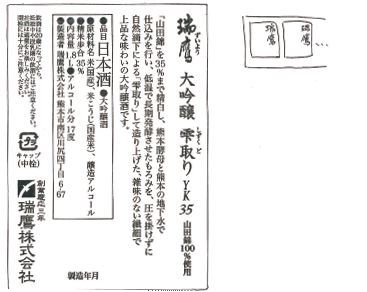 瑞鷹 大吟醸 雫取り YK35 山田錦100%使用
ずいよう
しずくど
「山田錦」を35%まで精白し、熊本酵母と熊本の地下水で
仕込みを行い、低温で長期発酵させたもろみを、圧を掛けずに
自然滴下による「雫取り」して造り上げた、雑味のない繊細で
上品な味わいの大吟醸酒です。
●品目 日本酒 ●大吟醸酒
●原材料名 米(国産)、米こうじ(国産米)、醸造アルコール
●精米歩合 35%
●内容量 1.8L ●アルコール分 17度
●製造者 瑞鷹株式会社 熊本市南区川尻四丁目6-67
キャップ
(中栓)
創業慶応三年
瑞鷹株式会社
製造年月
瑞鷹
瑞鷹